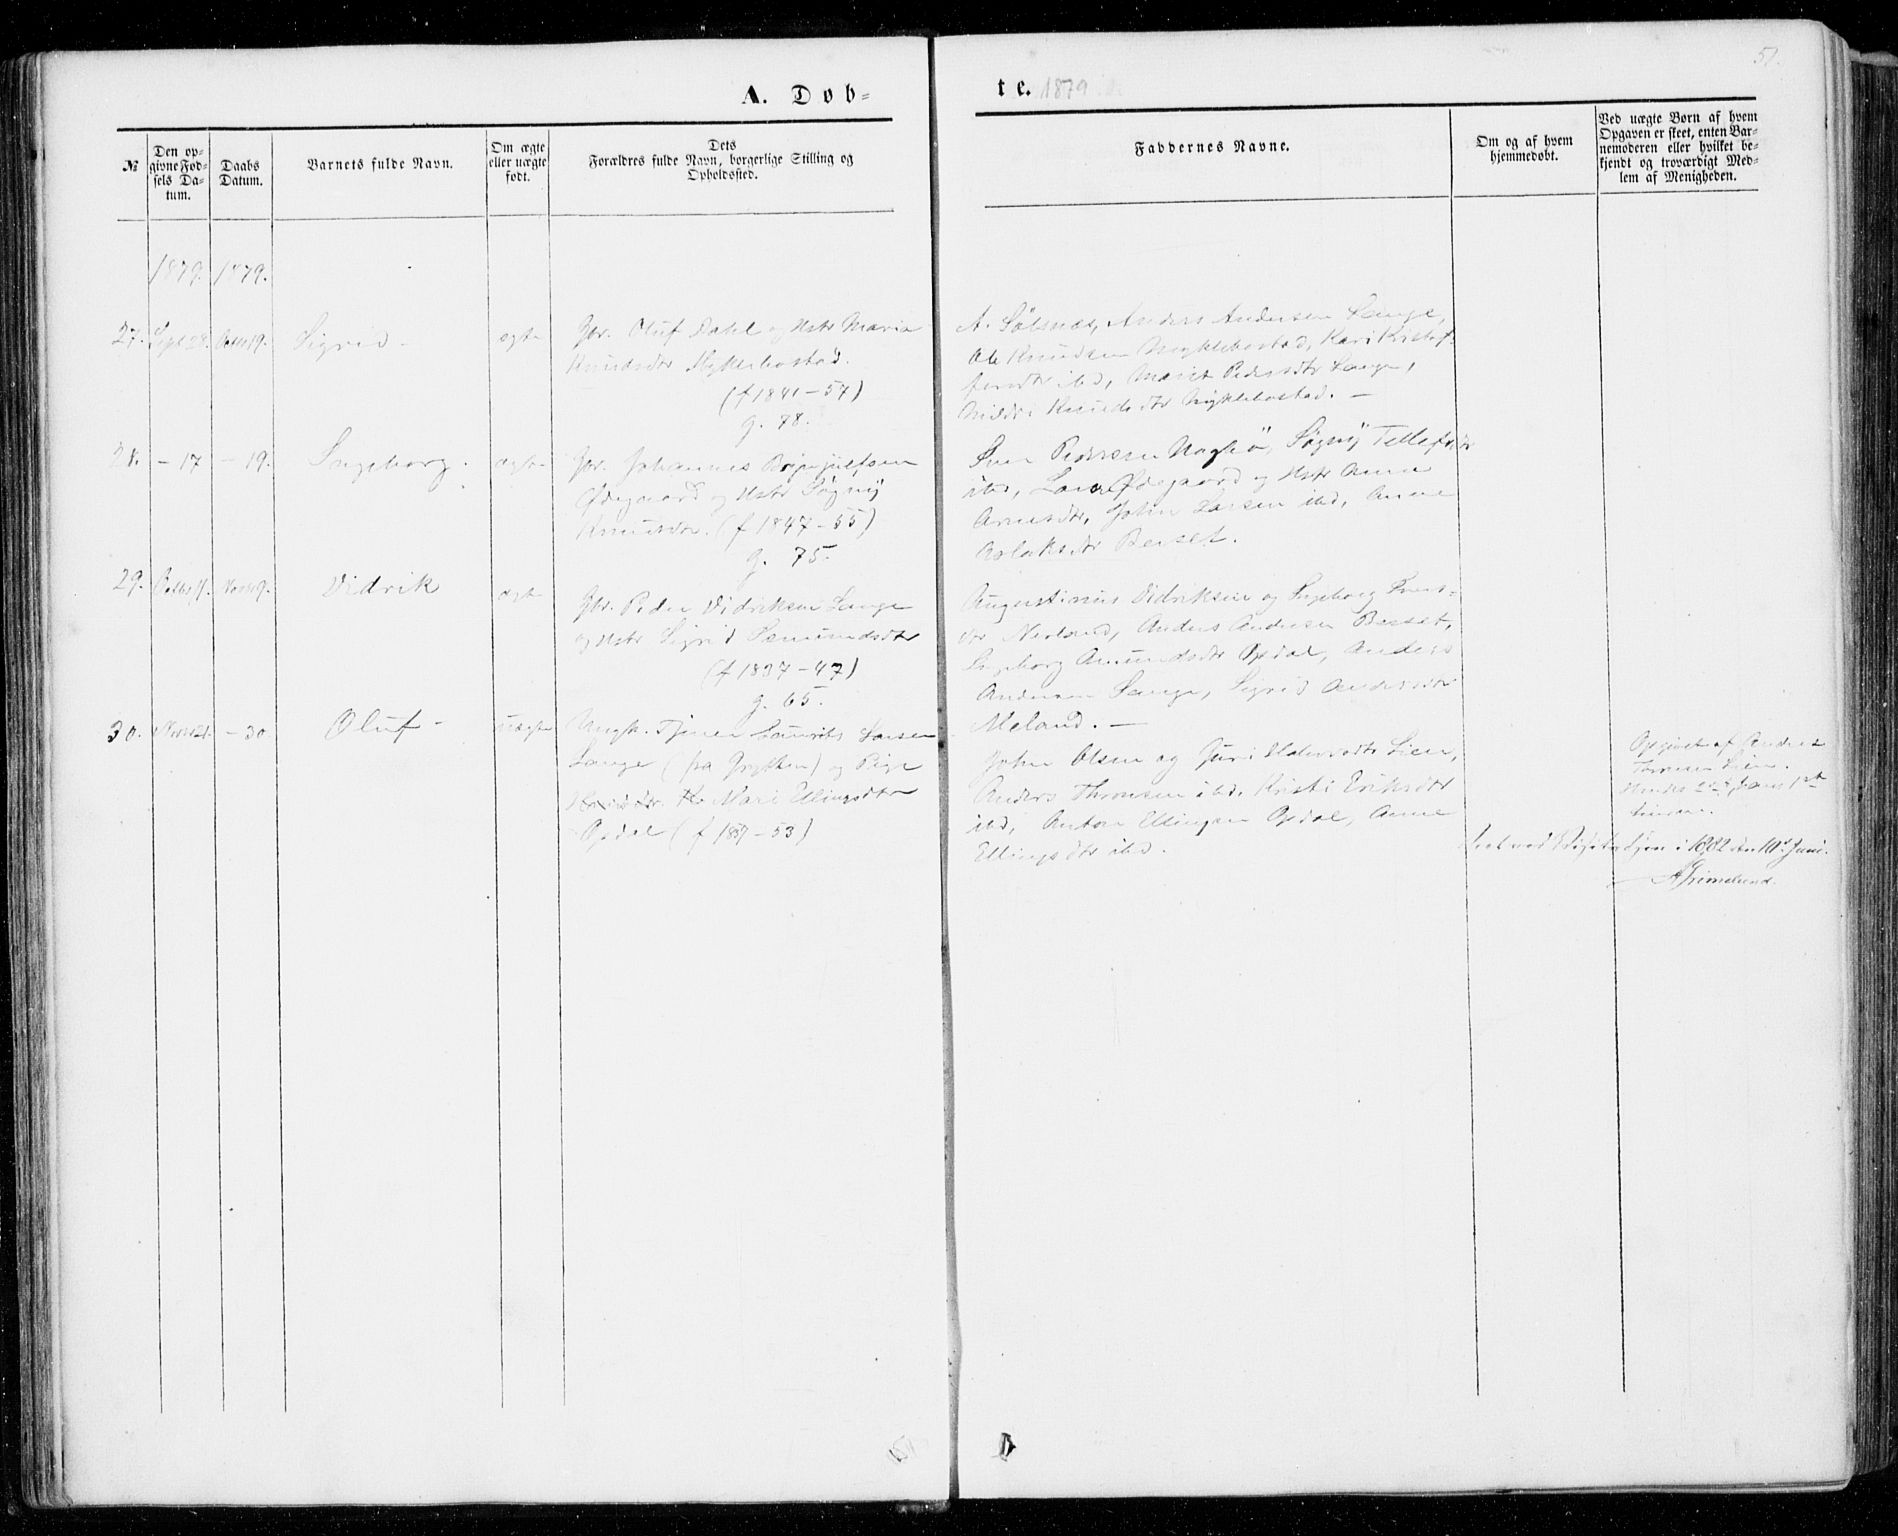 51.
A. Døb=
te. 1879
№
Den op-
givne Fød-
sels Da-
tum.
Daabs
Datum.
Barnets fulde Navn.
Om ægte
eller uægte
født.
Dets
Forældres fulde Navn, borgerlige Stilling og
Opholdssted.
Faddernes Navne.
Om og af hvem
hjemmedøbt.
Ved uægte Børn af hvem
Opgaven er skeet, enten Bar-
nemoderen eller hvilket be-
kjendt og troværdigt Med-
lem af Menigheden.
1879. 1879.
27. Sept 28. Octbr 19. Sigrid - ægte
Gbr. Oluf Dahl og Hstr Marie
Knudsdtr Myklebostad.
(f 1841-57)
g. 78.
A. Sølsnæs, Anders Andersen Lange,
Ole Knudsen Myklebostad, Kari Kristof-
fersdtr ibd, Marit Pedersdtr Lange,
Knudsdtr Myklebostad. -
28. - 17 - 19. Ingeborg. ægte
Gbr. Johannes Brynjulfsen
Ødegaard og Hstr Søgnij
Knudsdtr. (f 1847-55)
g. 75.
Iver Pedersen Søgnij
ibd, Lars Ødegaard og Hstr Anne
Arnesdtr, John Larsen ibd, Anne
Aslaksdtr Berset.
29. Octbr 11. Novbr 9. Vidrik ægte
Gbr. Peder Vidriksen Lange
og Hstr Sigrid Semundsdtr
(f 1837-47)
g. 65.
Augustinus Vidriksen og Ingeborg Ivers-
dtr Nerland, Anders Andersen Berset,
Ingeborg Amundsdtr Opdal, Anders
Andersen Lange, Sigrid Andersdtr
Meland. -
30. Novbr 21. - 30. Oluf - uægte
Ungk. Tjener Laurits Larsen
Lange (fra Grytten) og Pige
Mari Ellingsdtr
Opdal (f 1857-53)
John Olsen og Guri Halvorsdtr Lien,
Anders Thronsen ibd. Kristi Eriksdtr
ibd, Anton Ellingsen Opdal, Anne
Ellingsdtr ibd.
Opgivet af Anders
Thronsen Lien.
Hendes 2det, hans 1ste
Seet ved Visitatsen i 1882 den 10de Juni.
A Grimelund.